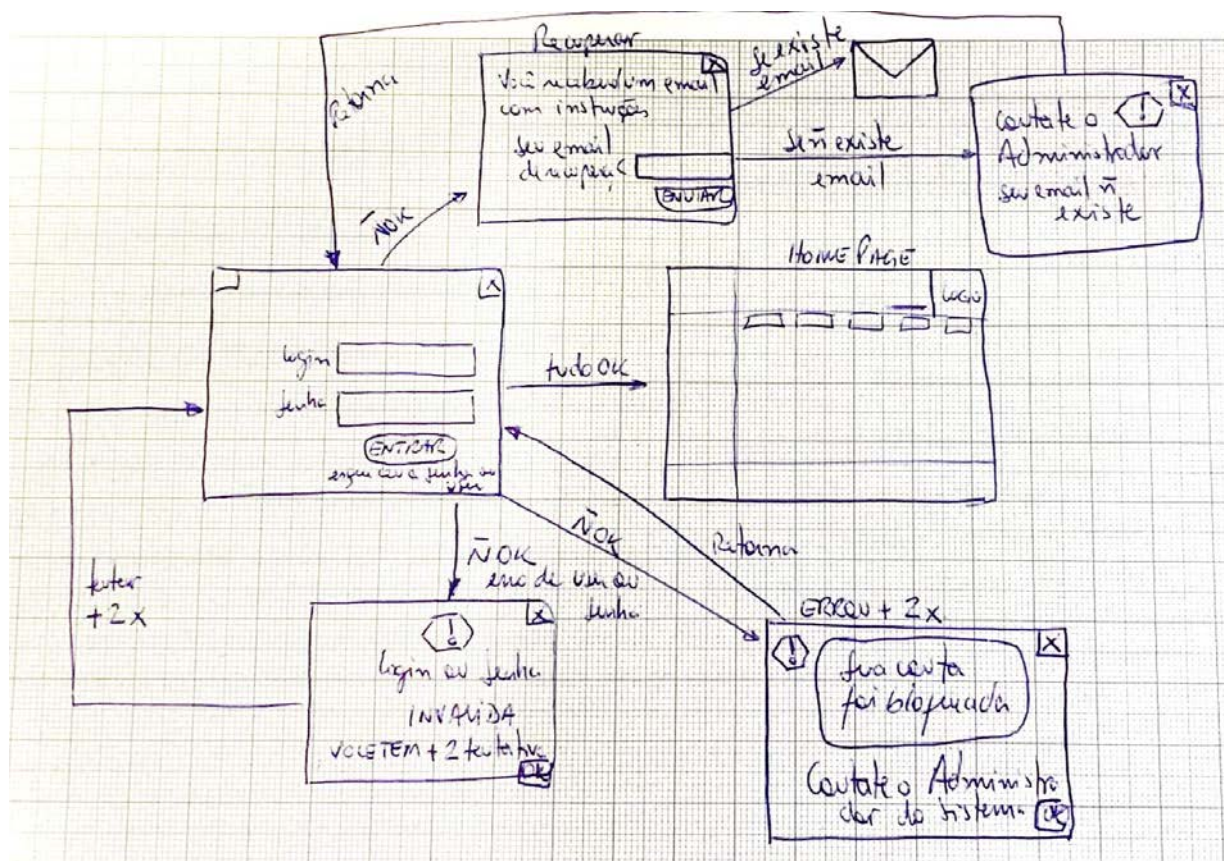 Recuperar
Você receberá um email
com instruções
seu email
de recuperaç
ENVIAR
X
Se existe
email
Se ñ existe
email
X
!
Contate o
Administrador
seu email ñ
existe
Retorna
ÑOK
X
login
senha
ENTRAR
esqueceu a senha ou
user
tudo OK
HOME PAGE
LOGIN
ÑOK
erro de user ou
senha
ÑOK
Retorna
tentar
+ 2 x
X
!
login ou senha
INVALIDA
VOCE TEM + 2 tentativa
OK
ERROU + 2 x
X
!
sua conta
foi bloqueada
Contate o Administra
dor do sistema
OK